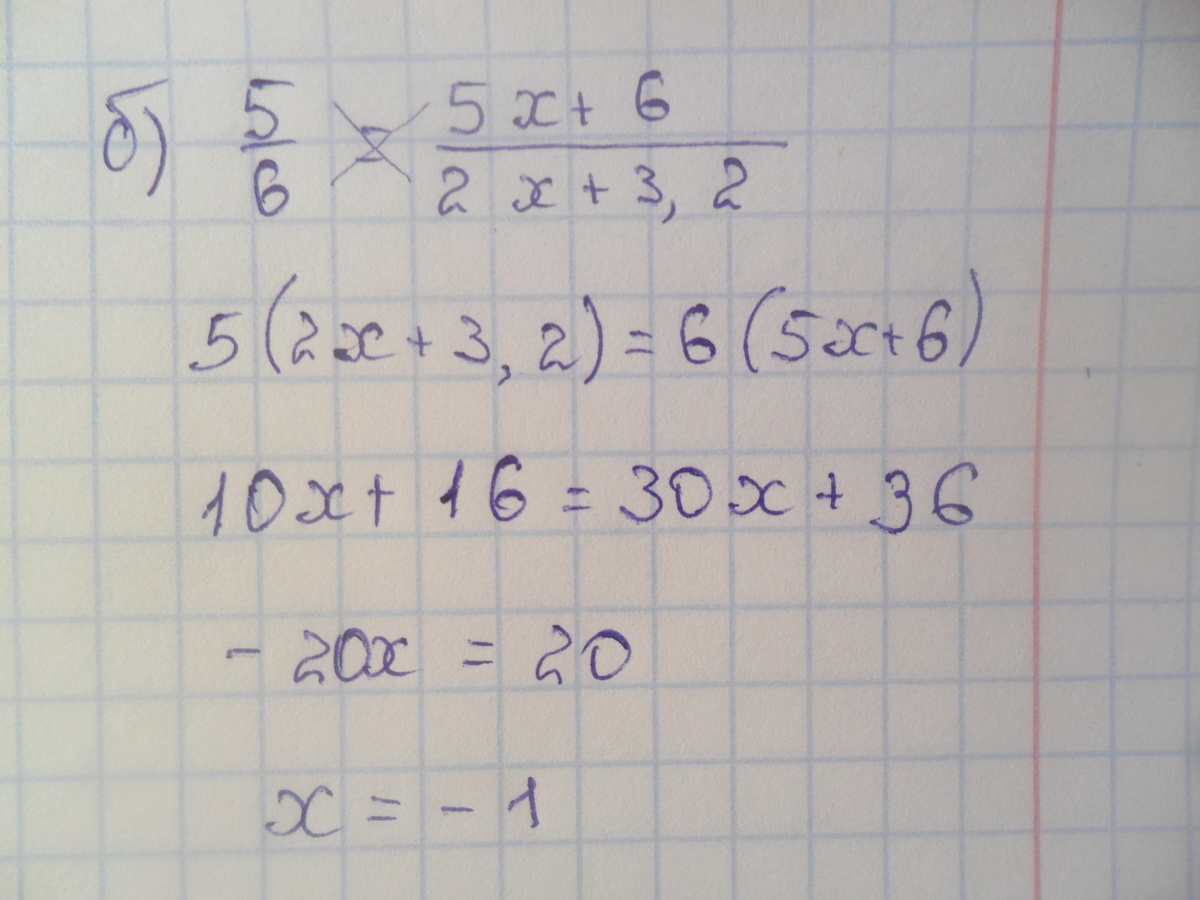 б) 5/6 = (5x + 6)/(2x + 3,2)
5(2x + 3,2) = 6(5x+6)
10x + 16 = 30x + 36
- 20x = 20
x = - 1